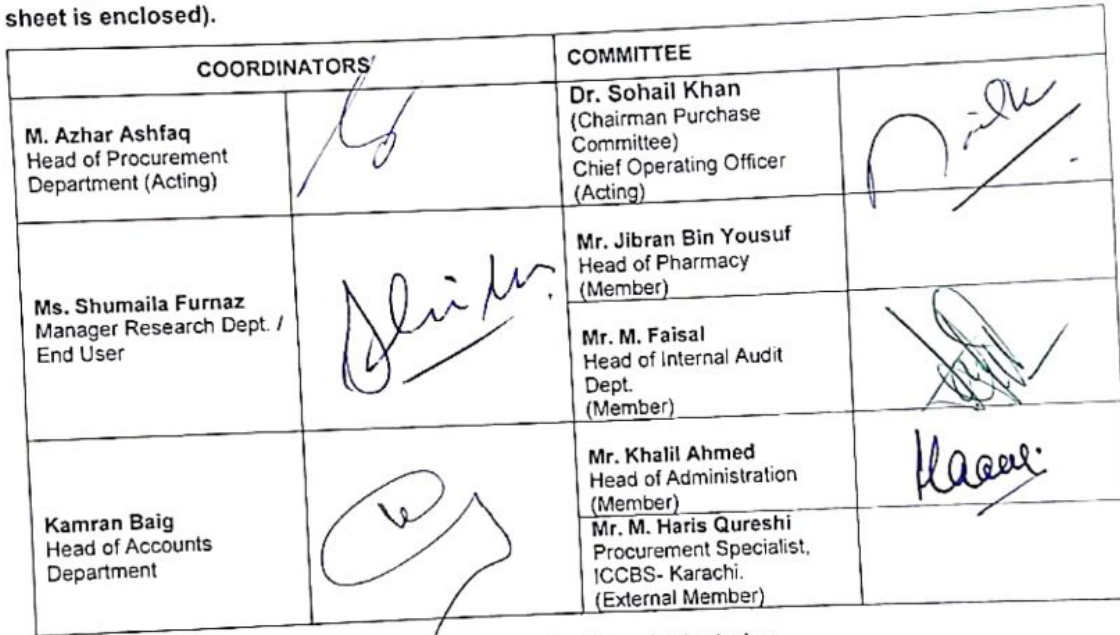 sheet is enclosed).
COORDINATORS
COMMITTEE
M. Azhar Ashfaq
Head of Procurement
Department (Acting)
Dr. Sohail Khan
(Chairman Purchase
Committee)
Chief Operating Officer
(Acting)
Ms. Shumaila Furnaz
Manager Research Dept. /
End User
Mr. Jibran Bin Yousuf
Head of Pharmacy
(Member)
Mr. M. Faisal
Head of Internal Audit
Dept.
(Member)
Kamran Baig
Head of Accounts
Department
Mr. Khalil Ahmed
Head of Administration
(Member)
Mr. M. Haris Qureshi
Procurement Specialist,
ICCBS- Karachi.
(External Member)